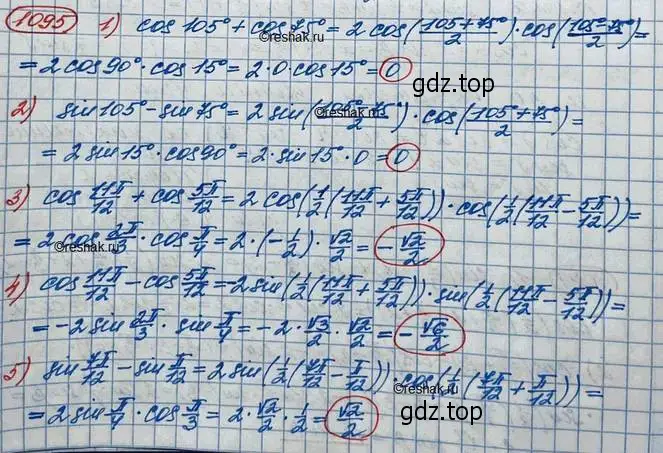 1095 1) cos 105° + cos 75° = 2 cos(105+75°/2) · cos(105°-75°/2) =
©reshak.ru ©reshak.ru
= 2 cos 90° · cos 15° = 2 · 0 · cos 15° = 0
gdz.top
2) sin 105° - sin 75° = 2 sin(105°-75°/2) · cos(105°+75°/2) =
©reshak.ru
= 2 sin 15° · cos 90° = 2 · sin 15° · 0 = 0
3) cos 11π/12 + cos 5π/12 = 2 cos(1/2(11π/12 + 5π/12)) · cos(1/2(11π/12 - 5π/12)) =
= 2 cos 2π/3 · cos π/4 = 2 · (-1/2) · √2/2 = -√2/2
©reshak.ru
4) cos 11π/12 - cos 5π/12 = -2 sin(1/2(11π/12 + 5π/12)) · sin(1/2(11π/12 - 5π/12)) =
= -2 sin 2π/3 · sin π/4 = -2 · √3/2 · √2/2 = -√6/2
5) sin 7π/12 - sin π/12 = 2 sin(1/2(7π/12 - π/12)) · cos(1/2(7π/12 + π/12)) =
©reshak.ru
= 2 sin π/4 · cos π/3 = 2 · √2/2 · 1/2 = √2/2
gdz.top